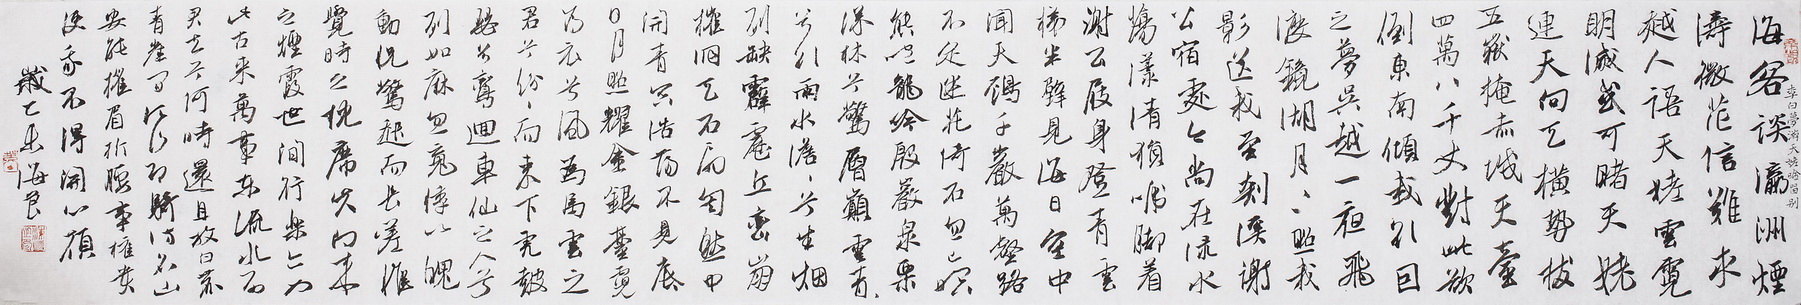 李白夢游天姥吟留别
海客談瀛洲煙
濤微茫信難求
越人語天姥雲霓
明滅或可睹天姥
連天向天橫勢拔
五嶽掩赤城天臺
四萬八千丈對此欲
倒東南傾我欲因
之夢吳越一夜飛
渡鏡湖月々照我
影送我至剡溪謝
公宿處今尚在淥水
蕩漾清猿啼脚着
謝公屐身登青雲
梯半壁見海日空中
聞天鷄千巖萬壑路
不定迷花倚石忽已暝
熊咆龍吟殷巖泉栗
深林兮驚層巔雲青々
兮欲雨水澹々兮生烟
列缺霹靂丘巒崩
摧洞天石扇訇然中
開青冥浩蕩不見底
日月照耀金銀臺霓
為衣兮風為馬雲之
君兮紛々而來下虎鼓
瑟兮鸞迴車仙之人兮
列如麻忽魂悸以魄
動怳驚起而長嗟惟
覺時之枕席失向來
之煙霞世間行樂亦如
此古來萬事東流水別
君去兮何時還且放白鹿
青崖間須行即騎訪名山
安能摧眉折腰事權貴
使我不得開心顏